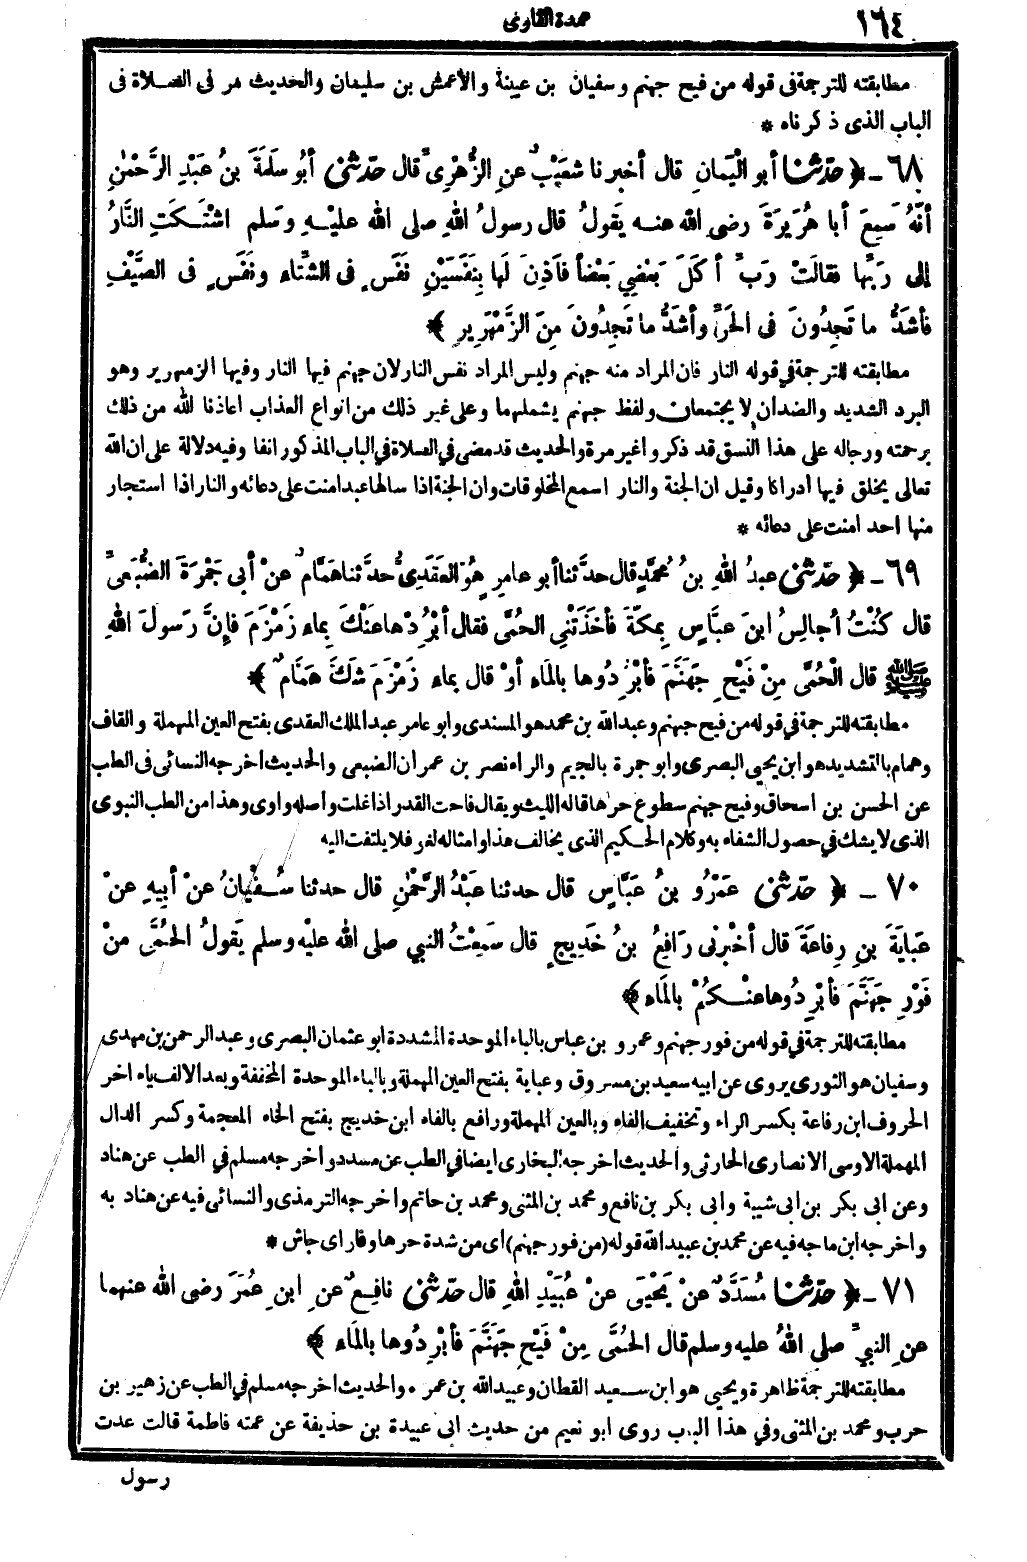 ١٦٤
عمدة القاوى
مطابقته للترجمة فى قوله من فيح جهنم وسفيان بن عيينة والأعمش بن سليمان والحديث مر فى الصلاة فى
الباب الذى ذكرناه *
٦٨ ـ ﴿ حدّثنا أبو الْيَمانِ قال أخبرنا شعَيْبٌ عنِ الزُّهْرِىِّ قال حدّثنى أبُو سَلَمَةَ بنُ عَبْدِ الرَّحْمٰنِ
أنَّهُ سَمِعَ أبا هُرَيرَةَ رضى الله عنـه يَقولُ قال رسولُ اللهِ صلى الله عليْـهِ وسَلم اشْتَـكَتِ النَّارُ
إلى رَبِّها فقالَتْ رَبِّ أكَلَ بَعْضِي بَعْضاً فأذِنَ لَها بِنَفَسَيْنِ نَفَسٍ فى الشِّتاءِ ونَفَسٍ فى الصَّيْفِ
فأشَدُّ ما تَجِدُونَ فى الحَرِّ وأشَدُّ ما تَجِدُونَ مِنَ الزَّمْهَرِيرِ ﴾*
مطابقته للترجمة في قوله النار فان المراد منه جهنم وليس المراد نفس النار لان جهنم فيها النار وفيها الزمهرير وهو
البرد الشديد والضدان لا يجتمعان ولفظ جهنم يشملهما وعلى غير ذلك من انواع العذاب اعاذنا الله من ذلك
برحمته ورجاله على هذا النسق قد ذكروا غير مرة والحديث قد مضى في الصلاة في الباب المذكور انفا وفيه دلالة على ان الله
تعالى يخلق فيها أدراكا وقيل ان الجنة والنار اسمع المخلوقات وان الجنة اذا سالها عبد امنت على دعائه والنار اذا استجار
منها احد امنت على دعائه *
٦٩ ـ ﴿ حدّثنى عبدُ اللهِ بنُ مُحمَّدٍ قال حدّثنا أبو عامِرٍ هُوَ العَقَدِىُّ حدّثنا هَمَّامٌ عنْ أبي جَمْرَةَ الضُّبَعِىِّ
قال كُنْتُ أُجالِسُ ابنَ عبَّاسٍ بِمكّةَ فأخَذَتْنِي الحُمَّى فقال أبْرُدْها عَنْكَ بِماءِ زَمْزَمَ فإنَّ رَسولَ اللهِ
ﷺ قال الْحُمَّى مِنْ فَيْحِ جَهَنَّمَ فأبْرُدُوها بالمَاءِ أوْ قال بماءِ زَمْزَمَ شَكَّ هَمَّامٌ ﴾*
مطابقته للترجمة في قوله من فيح جهنم وعبد الله بن محمد هو المسندى وابو عامر عبد الملك العقدى بفتح العين المهملة والقاف
وهمام بالتشديد هو ابن يحيى البصرى وابو جمرة بالجيم والراء نصر بن عمران الضبعى والحديث اخرجه النسائى فى الطب
عن الحسن بن اسحاق وفيح جهنم سطوع حرها قاله الليث ويقال فاحت القدر اذا غلت واصله واوى وهذا من الطب النبوى
الذى لا يشك في حصول الشفاء به وكلام الحـكيم الذى يخالف هذا وامثاله لغو فلا يلتفت اليه
٧٠ ـ ﴿ حدّثنى عَمْرُو بنُ عَبَّاسٍ قال حدثنا عَبْدُ الرَّحْمٰنِ قال حدثنا سُـفْيانُ عنْ أبِيهِ عنْ
عَبايَةَ بنِ رِفاعَةَ قال أخْبرنى رَافِعُ بنُ خَدِيجٍ قال سَمِعْتُ النبي صلى الله عليْه وسلم يَقولُ الحُمَّى منْ
فَوْرِ جَهَنَّمَ فأبْرِدُوها عنْـكُمْ بالمَاءِ ﴾*
مطابقته للترجمة في قوله من فور جهنم وعمرو بن عباس بالباء الموحدة المشددة ابو عثمان البصرى وعبد الرحمن بن مهدى
وسفيان هو الثورى يروى عن ابيه سعيد بن مسروق وعباية بفتح العين المهملة وبالباء الموحدة المخففة وبعد الالف ياء اخر
الحروف ابن رفاعة بكسر الراء وتخفيف الفاء وبالعين المهملة ورافع بالفاء ابن خديج بفتح الخاء المعجمة وكسر الدال
المهملة الاوسى الانصارى الحارثى والحديث اخرجه البخارى ايضا في الطب عن مسدد واخرجه مسلم في الطب عن هناد
وعن ابى بكر بن ابى شيبة وابى بكر بن نافع ومحمد بن المثنى ومحمد بن حاتم واخرجه الترمذى والنسائى فيه عن هناد به
واخرجه ابن ماجه فيه عن محمد بن عبيد الله قوله (من فور جهنم) اى من شدة حرها وفار اى جاش *
٧١ ـ ﴿ حدّثنا مُسَدَّدٌ عنْ يَحْيَى عنْ عُبَيْدِ اللهِ قال حدّثنى نافِعٌ عنِ ابنِ عُمَرَ رضى الله عنهما
عنِ النبيِّ صلى اللهُ عليه وسلم قال الحُمَّى مِنْ فَيْحِ جَهَنَّمَ فأبْرِدُوها بالمَاءِ ﴾*
مطابقته للترجمة ظاهرة ويحيى هو ابن سـعيد القطان وعبيد الله بن عمر . والحديث اخرجه مسلم في الطب عن زهير بن
حرب ومحمد بن المثنى وفي هذا الباب روى ابو نعيم من حديث ابى عبيدة بن حذيفة عن عمته فاطمة قالت عدت
رسول